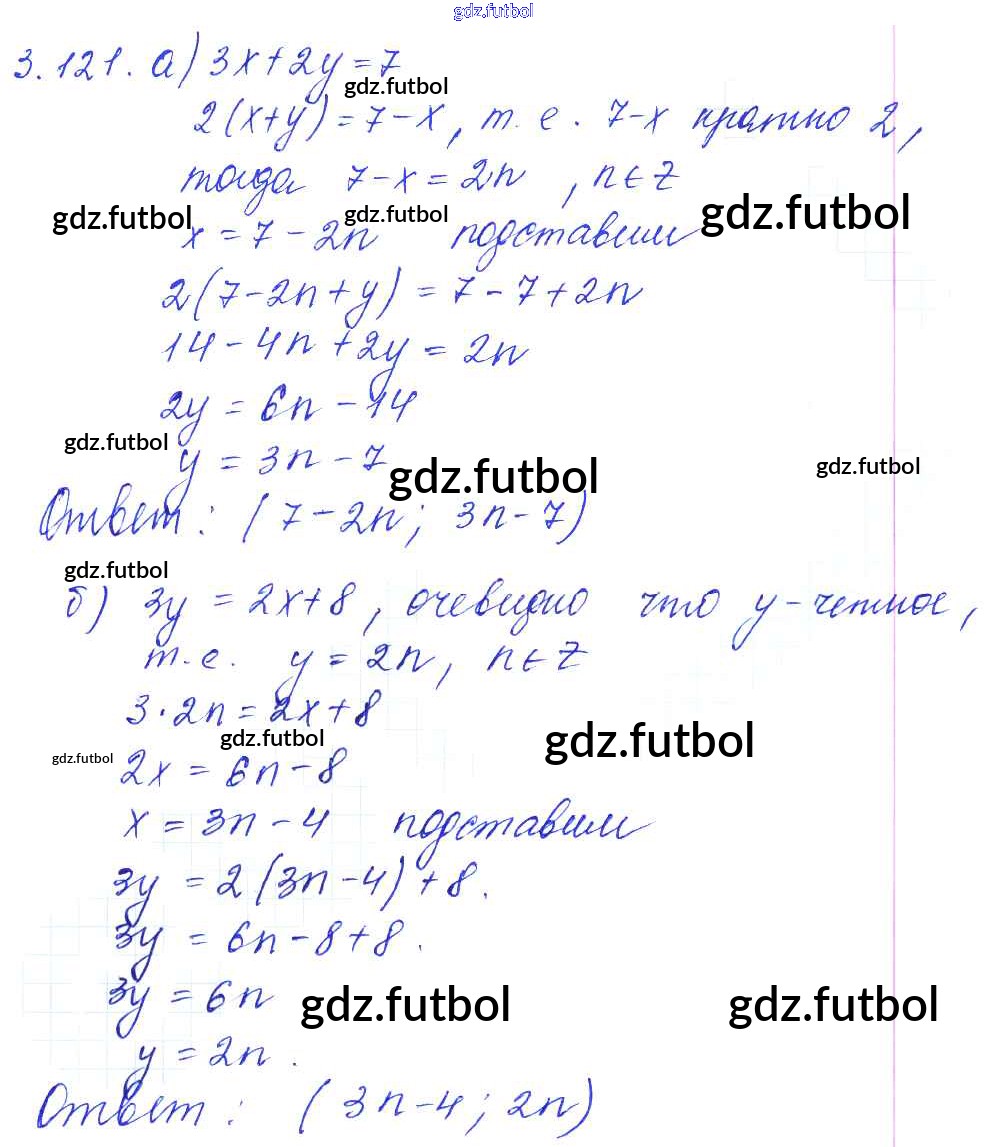 gdz.futbol
3.121. а) 3x+2y=7
gdz.futbol
2(x+y)=7-x, т.е. 7-x кратно 2,
тогда 7-x=2n, n∈Z
gdz.futbol gdz.futbol gdz.futbol
x=7-2n подставим
2(7-2n+y)=7-7+2n
14-4n+2y=2n
2y=6n-14
gdz.futbol
y=3n-7
gdz.futbol gdz.futbol
Ответ: (7-2n; 3n-7)
gdz.futbol
б) 3y=2x+8, очевидно что y-четное,
т.е. y=2n, n∈Z
3·2n=2x+8
gdz.futbol gdz.futbol gdz.futbol
2x=6n-8
x=3n-4 подставим
3y=2(3n-4)+8.
3y=6n-8+8.
3y=6n
gdz.futbol gdz.futbol
y=2n.
Ответ: (3n-4; 2n)